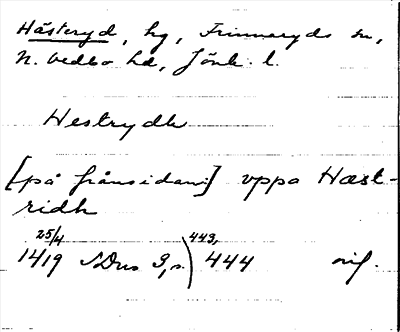 Hästeryd, hg, Frinnaryds sn,
N. Vedbo hd, Jönk. l.
Hestrydh
[på frånsidan:] vppa Hæst-
ridh
25/4 443,
1419 SDns 3, s. 444 orig.